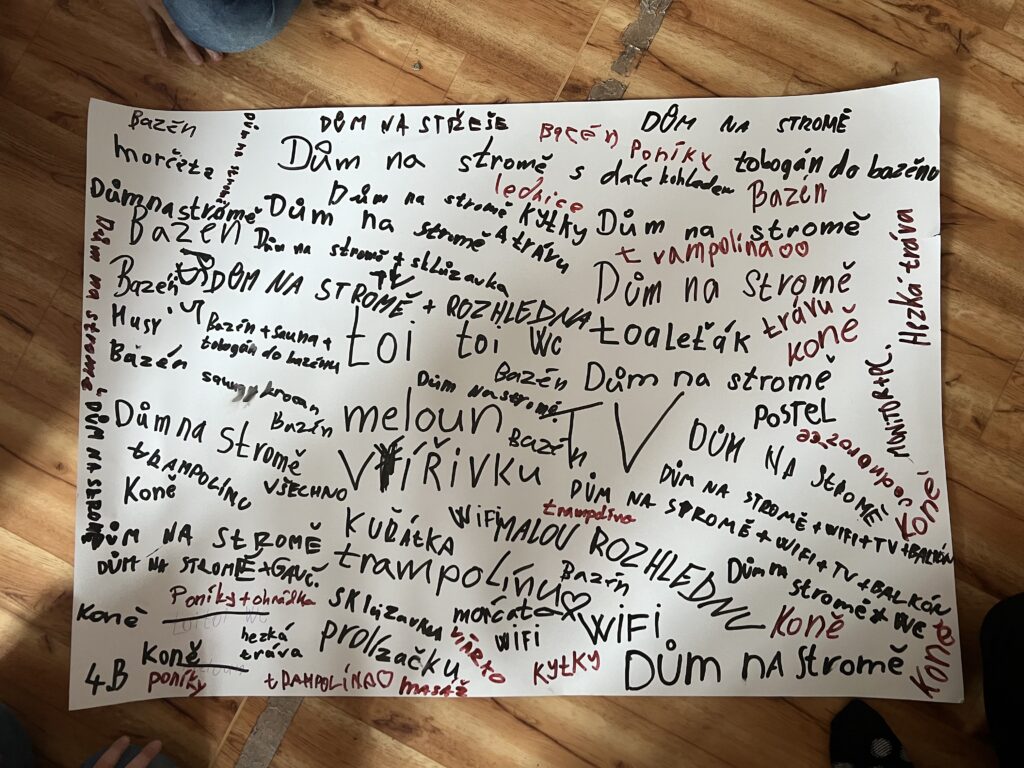 Bazén
Dům na stromě
DŮM NA STŘEŠE
Bazén
DŮM NA STROMĚ
morčata
Dům na stromě s dalekohledem
Poníky
tobogán do bazénu
lednice
Bazén
Dům na stromě
Dům na stromě
Dům na stromě
KYtKy
A trávu
Dům na stromě
Bazén
Dům na stromě + sklůzavka
trampolína
Hezká tráva
Dům na stromě
Bazén
DŮM NA STROMĚ + ROZHLEDNA
Dům na stromě
trávu
koně
Husy
Bazén + sauna +
tobogán do bazénu
toi toi WC
toaleťák
Bazén
sauna
krocan
Dům na stromě
Bazén
Dům na stromě
MONITOR + PC.
POSTEL
Dům na stromě
Bazén
meloun
TV
Bazén
DŮM NA STROMĚ
DŮM NA STROMĚ
tRAMPOLÍNU
VŠECHNO
VÍŘIVKU
Koně
DŮM NA STROMĚ + WIFI + TV + BALKÓN
DŮM NA STROMĚ + WIFI + TV + BALKÓN
Koně
trampolína
DŮM NA StROMĚ
KUŘÁTKA
WiFi
MALOU ROZHLEDNU
DŮM NA STROMĚ + GAUČ
trampolínu
Bazén
Dům na
stromě
WC
Poníky + ohrádka
Koně
SKlůzavka
morčata
WiFi
WiFi.
Koně
hezká
tráva
prolízačku
Koně
DŮM NA Stromě
Koně
4.B
poníky
tRAMPOLÍNA
masáž
KYtKY